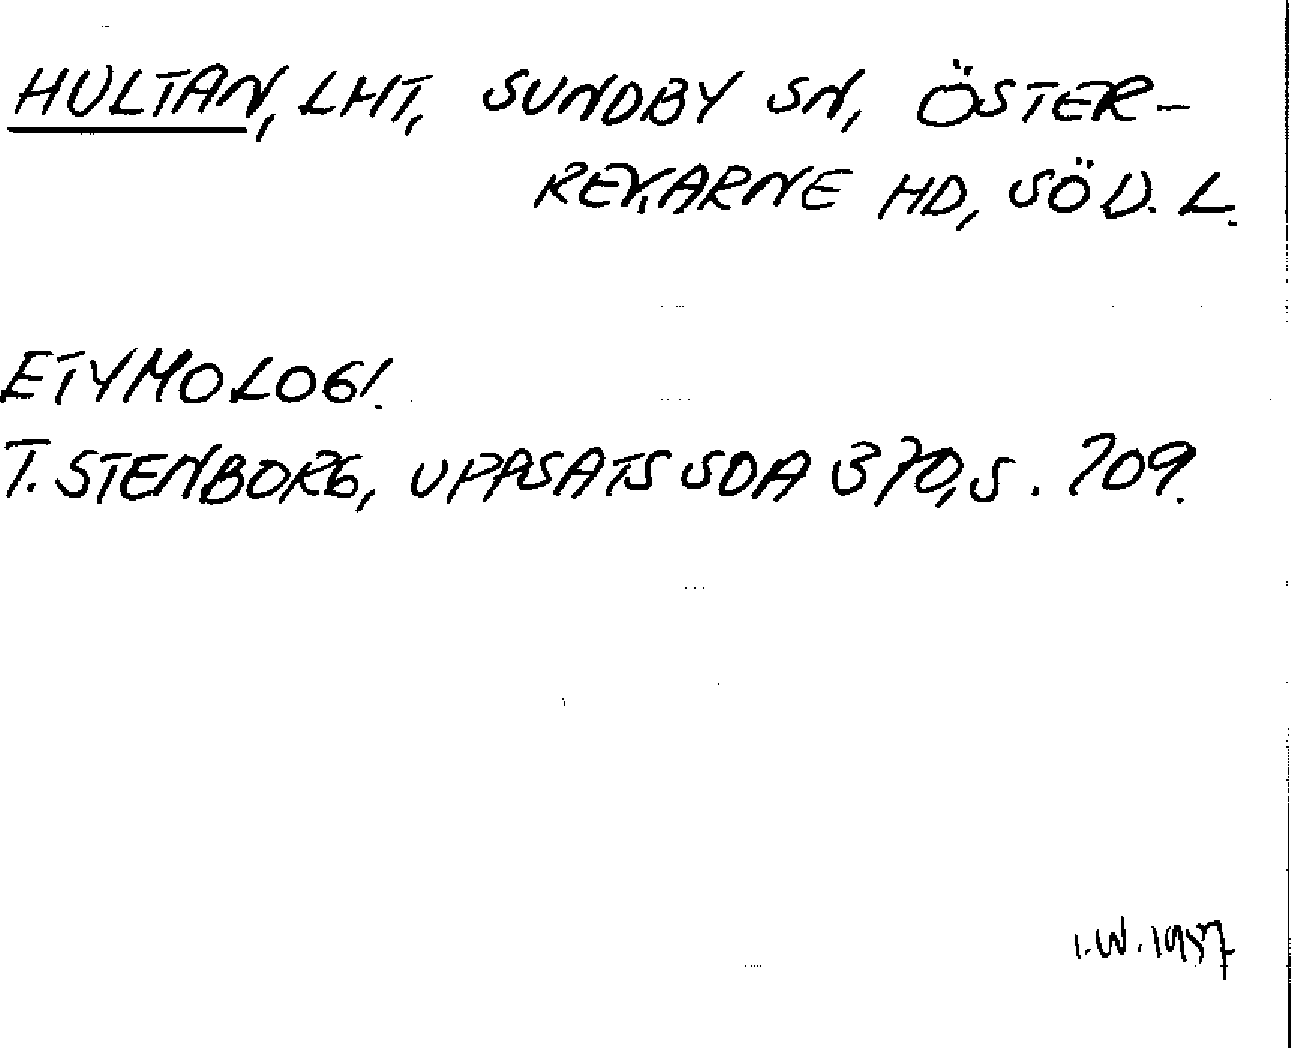 HULTAN, LHT, SUNDBY SN, ÖSTER-
REKARNE HD, SÖD. L.
ETYMOLOGI.
T. STENBORG, UPPSATS SDA 370, S. 709.
I.W. 1987